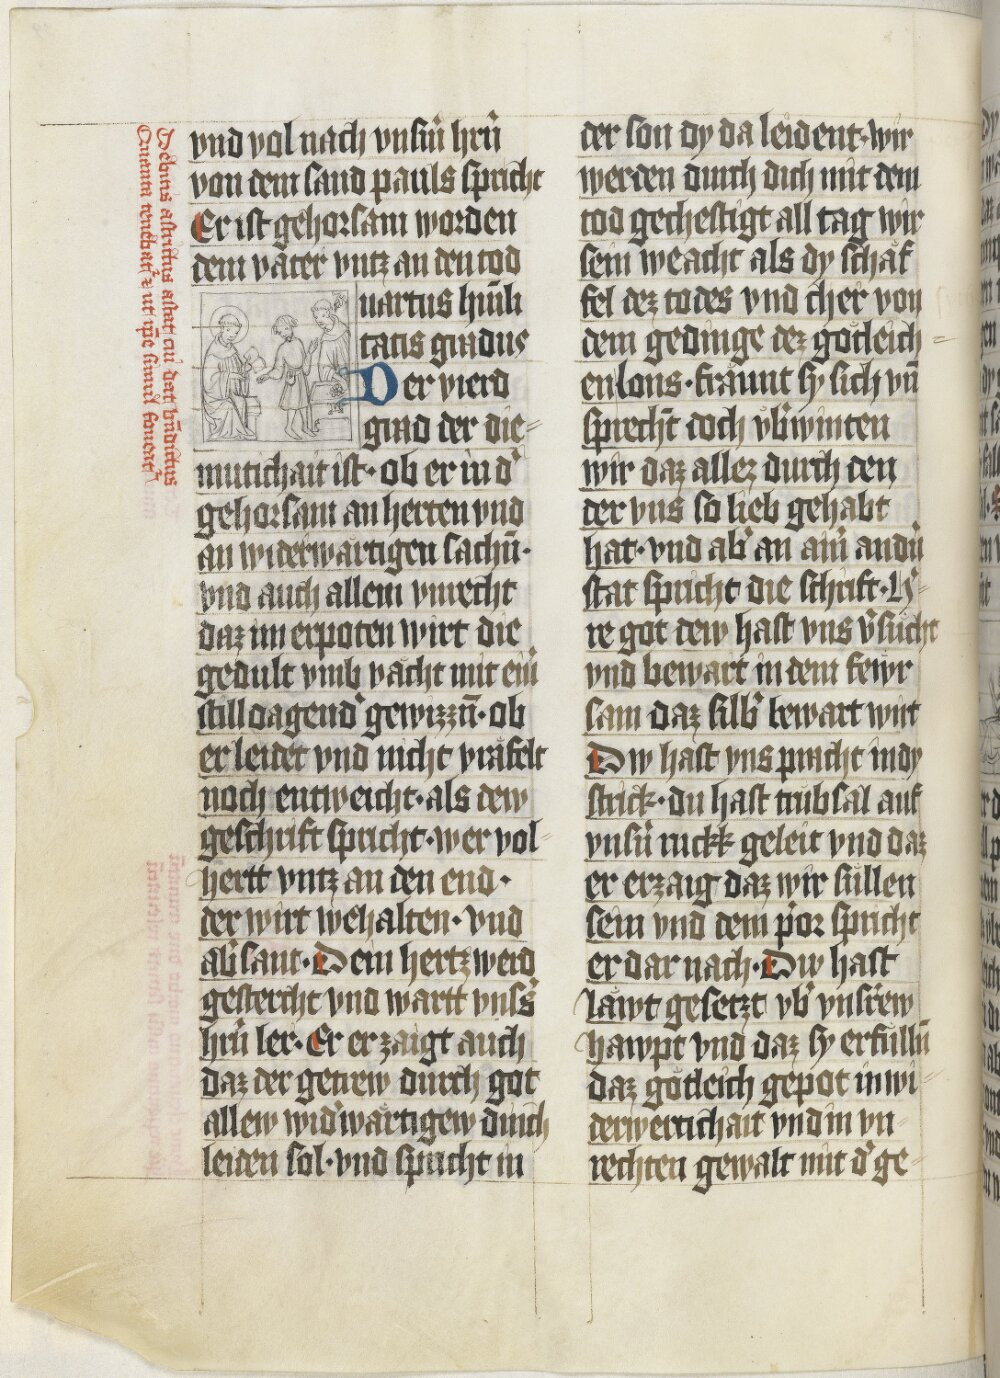 Debitis astrictus astat cui dat bn̄dictus
Quanta teneba��� ut ip̄e simul foueat᷑
vnd vol nach vnsm̄ hrn̄
von dem sand pauls spricht
Er ist gehorsam worden
dem vater vntz an den tod
uartus humili
tatis gradus
Der vierd
grad der die-
mutichait ist· ob er in d᷑
gehorsam an herten vnd
an widerwartigen sachn̄·
vnd auch allem vnrecht
daz im erpoten wirt die
gedult vmb vacht mit ein̄
still dagend᷑ gewizzn̄· ob
er leidet vnd nicht vräfelt
noch entweicht· als dew
geschrift spricht· wer vol-
hertt vntz an den end·
der wirt wehalten· vnd
ab᷑ sant· Dein hertz werd
gestercht vnd wartt vnss᷑
hrn̄ ler· Er erzaigt auch
daz der getrew durch got
allew wid᷑wartigew durich
leiden sol· vnd spricht in
der son dy da leident· wir
werden durch dich mit dem
tod gechestigt all tag wir
sein weacht als dy schaf
fel dez todes vnd cher von
dem gedinge dez gotleich-
en lons· fräunt sy sich vn̄
sprechn̄t doch vb᷑winten
wir daz allez durch den
der vns so lieb gehabt
hat· vnd ab᷑ an aim̄ andn̄
stat spricht die schrift· H᷑-
re got dew hast vns v᷑sucht
vnd bewart in dem fewr
sam daz silb᷑ bewart wirt
Dw hast vns pracht in dy
strick· du hast trubsal auf
vnsn̄ rukk geleit vnd daz
er erzaig daz wir sullen
sein vnd dem p᷑or spricht
er dar nach· Dw hast
läwt gesetzt vb᷑ vnsrew
hawpt vnd daz sy erfulln̄
daz gotleich gepot in wi-
derwertichait vnd in vn-
rechten gewalt mit d᷑ ge-